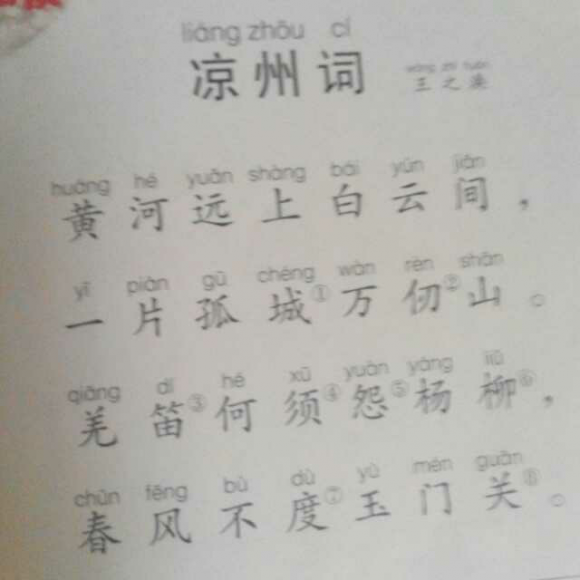 liáng zhōu cí
凉州词
wáng zhī huàn
王之涣
huáng hé yuǎn shàng bái yún jiān
黄河远上白云间，
yī piàn gū chéng wàn rèn shān
一片孤城①万仞②山。
qiāng dí hé xū yuàn yáng liǔ
羌笛③何须④怨⑤杨柳⑥，
chūn fēng bù dù yù mén guān
春风不度⑦玉门关⑧。